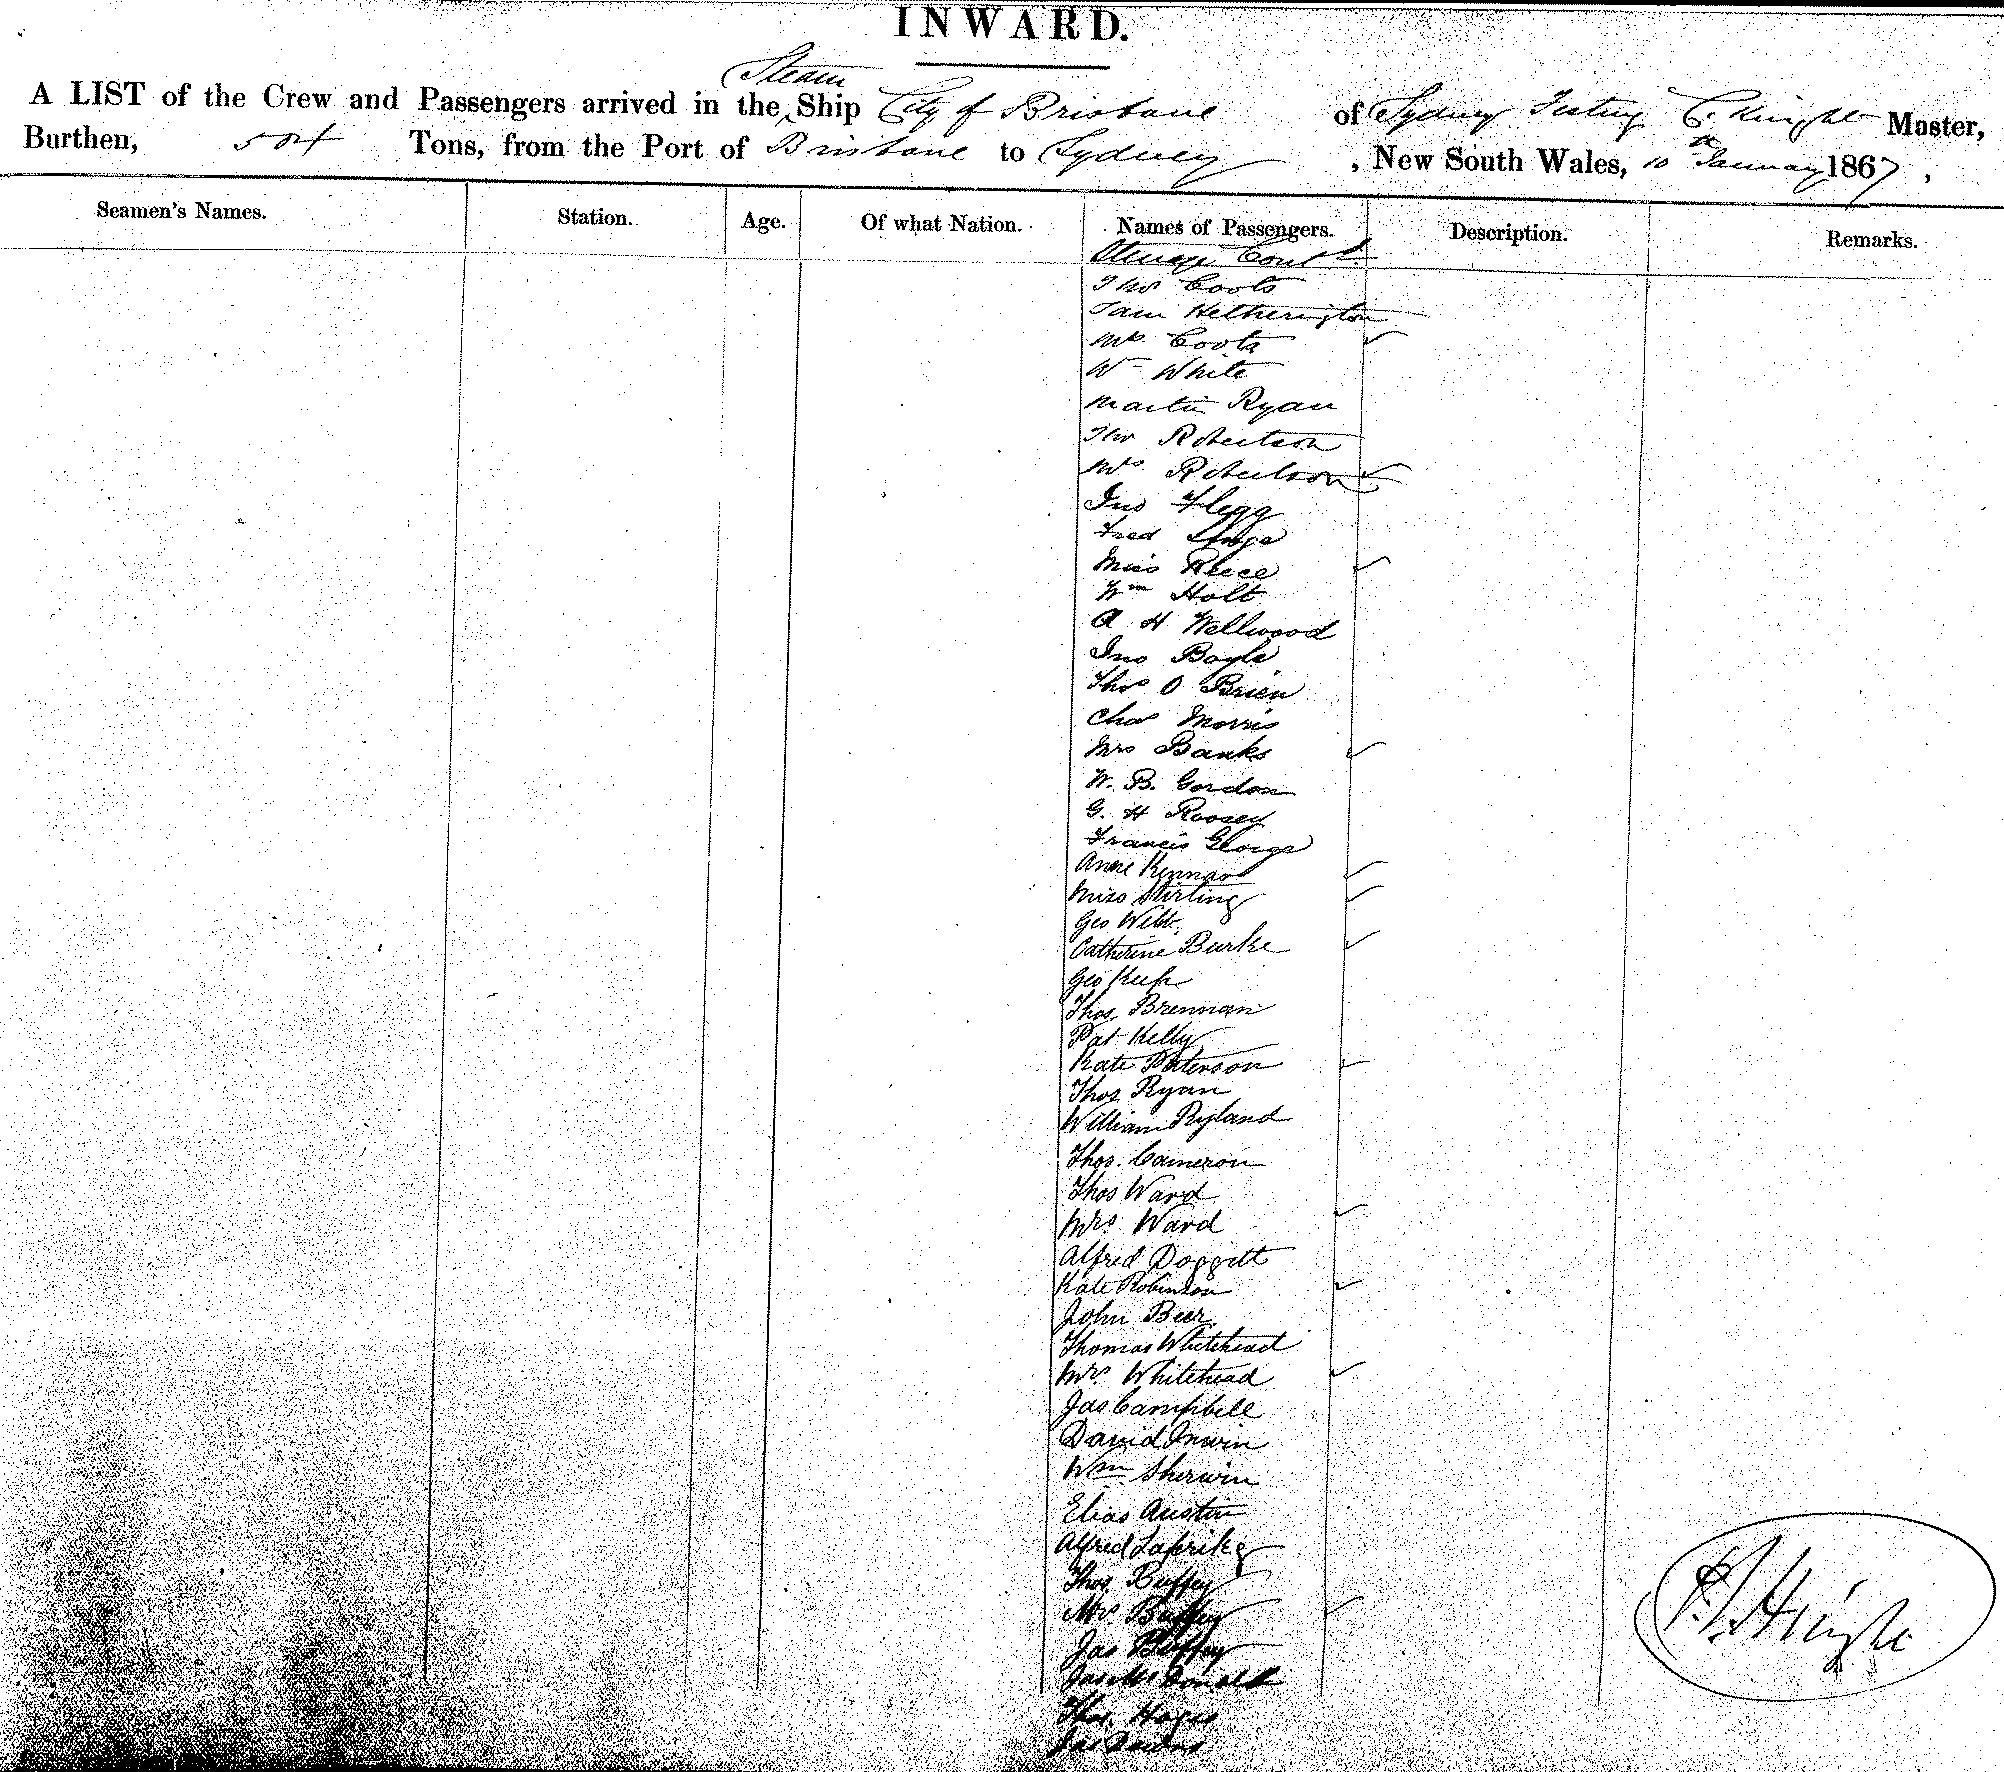 INWARD.
A LIST of the Crew and Passengers arrived in the Steam Ship City of Brisbane of Sydney C. Knight Master,
Burthen, 504 Tons, from the Port of Brisbane to Sydney, New South Wales, 10th January 1867,
Seamen's Names. Station. Age. Of what Nation. Names of Passengers. Description. Remarks.
Steerage Contd
Thos Coots
Hetherington
Mrs Coots
Wm White
Martin Ryan
Thos Robertson
Mrs Robertson
Jno Flegg
Fred
Miss Reece
Wm Holt
A H Wellwood
Jno Boyle
Thos O Brien
Chas Morris
Mrs Banks
W. B. Gordon
G. H
Francis George
Anne
Miss Stirling
Geo Webb
Catherine Burke
Geo
Thos Brennan
Pat Kelly
Kate Paterson
Thos Ryan
William Ryland
Thos. Cameron
Thos Ward
Mrs Ward
Alfred Doggett
Kate Robinson
John Beer
Thomas Whitehead
Mrs Whitehead
Jas Campbell
David Irwin
Wm Sherwin
Elias Austin
Alfred
Thos Buffey
Mrs Buffey
Jas Buffey
Jas McDonald
Thos. Hayes
Jas
Knight